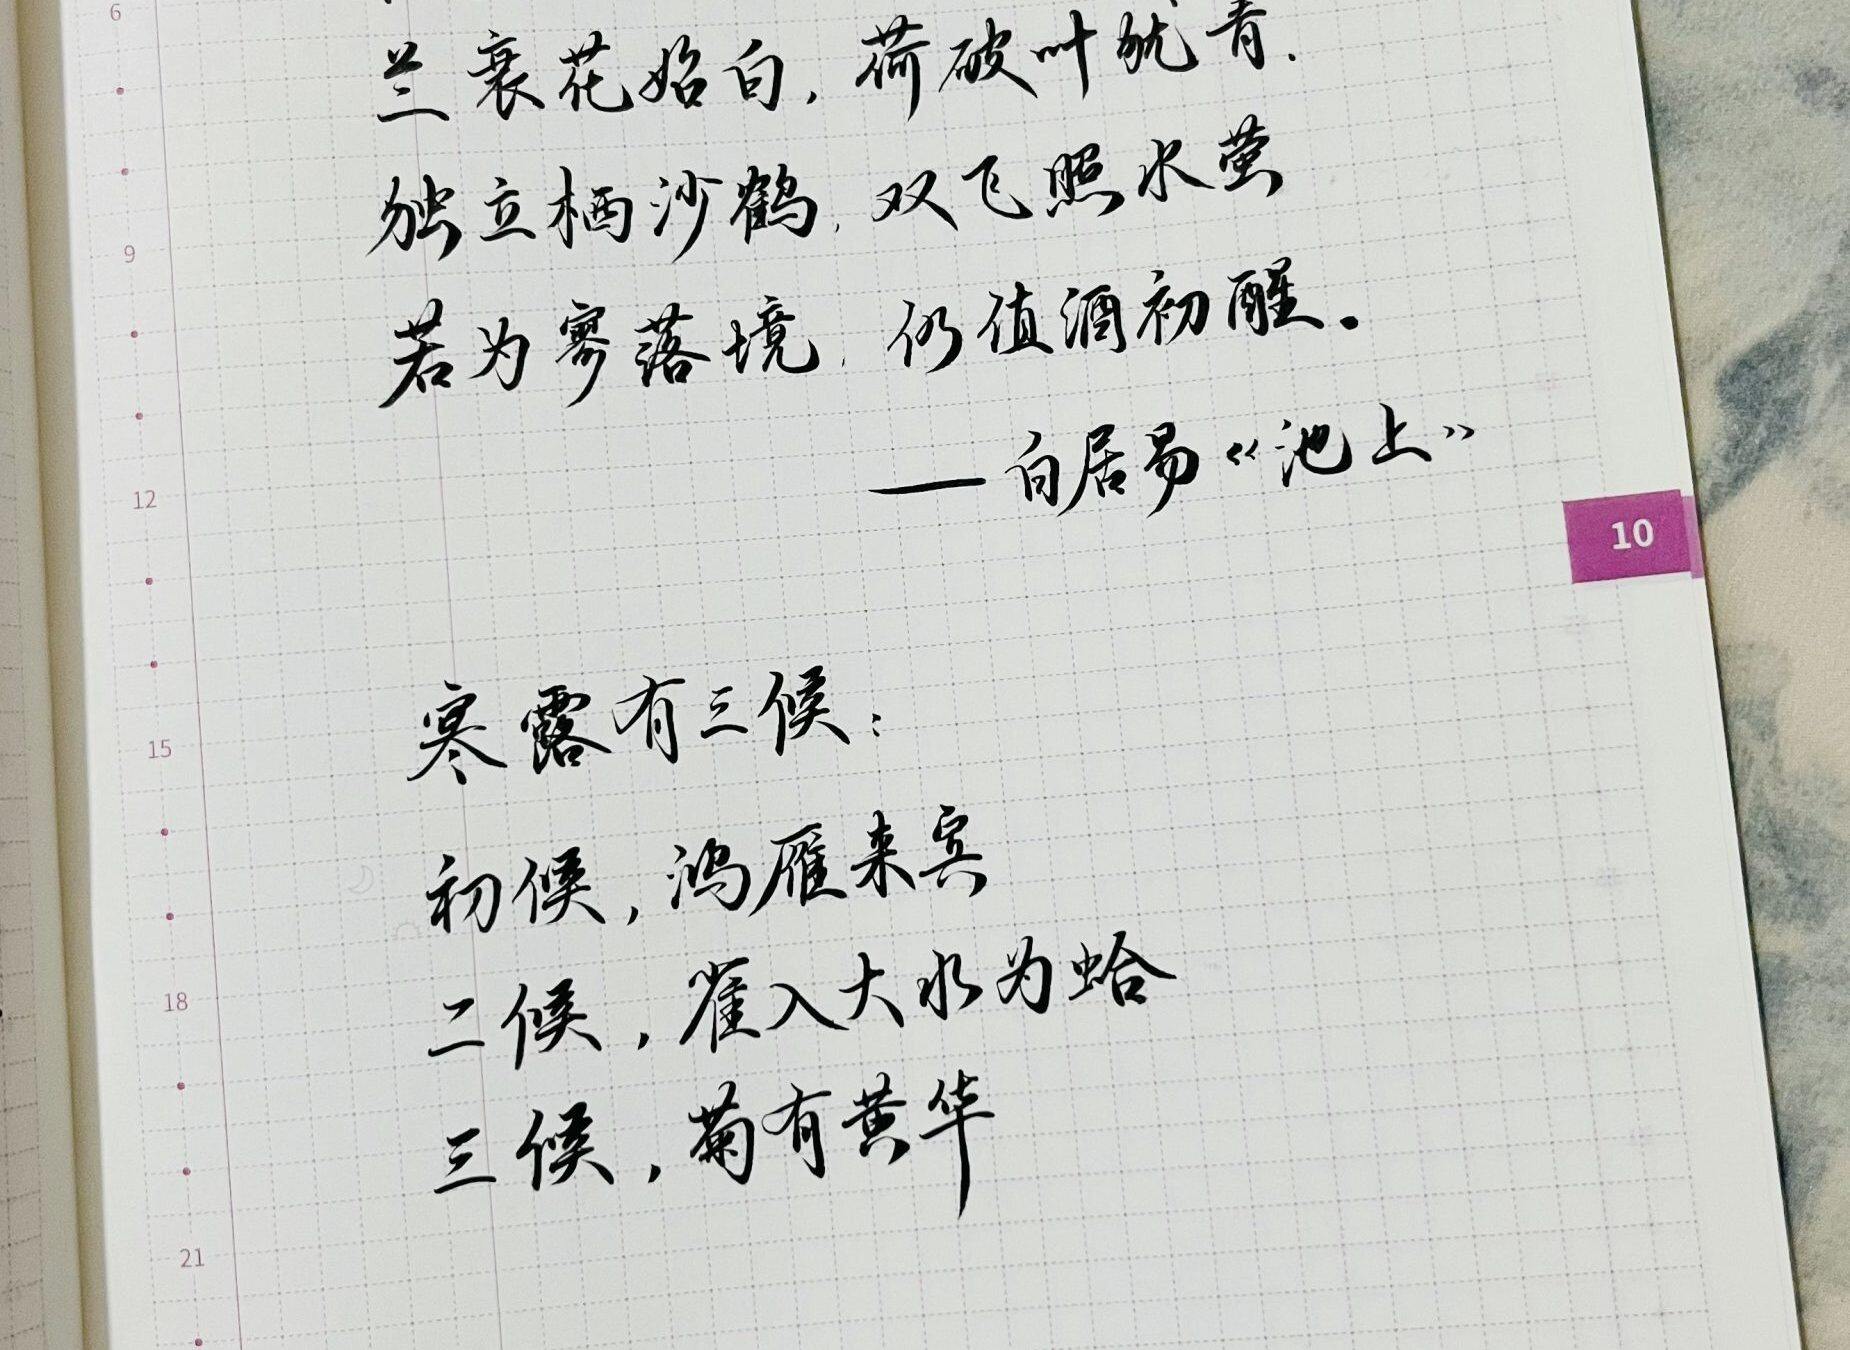 6
兰衰花始白，荷破叶犹青．
独立栖沙鹤，双飞照水萤
9
若为寥落境，仍值酒初醒。
——白居易《池上》
12
10
寒露有三候：
15
初候，鸿雁来宾
二候，雀入大水为蛤
18
三候，菊有黄华
21